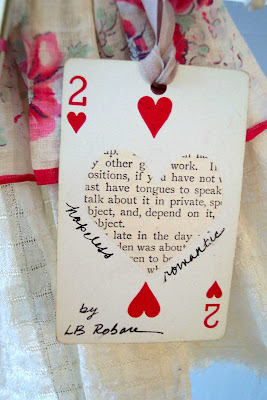 2
y other g work. I
ositions, if you have not
ast have tongues to speak
talk about it in private, sp
object, and, depend on it,
late in the day
den was about
en to be
w
hopeless
romantic
by
LB Robare
2